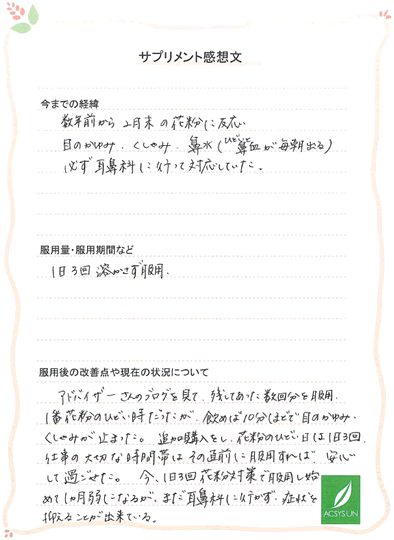 サプリメント感想文
今までの経緯
数年前から 2月末の花粉に反応
目のかゆみ・くしゃみ・鼻水(ひどいと鼻血が毎朝出る)
必ず耳鼻科に行って対応していた。
服用量・服用期間など
1日3回 溶かさず服用。
服用後の改善点や現在の状況について
アドバイザーさんのブログを見て、残してあった数回分を服用。
1番花粉のひどい時だったが、飲めば10分ほどで目のかゆみ・
くしゃみが止まった。追加購入をし、花粉のひどい日は1日3回、
仕事の大切な時間帯はその直前に服用すれば、安心
して過ごせた。今、1日3回花粉対策で服用し始
めて1ヵ月弱になるが、まだ耳鼻科に行かず、症状を
抑えることが出来ている。
ACSYSUN